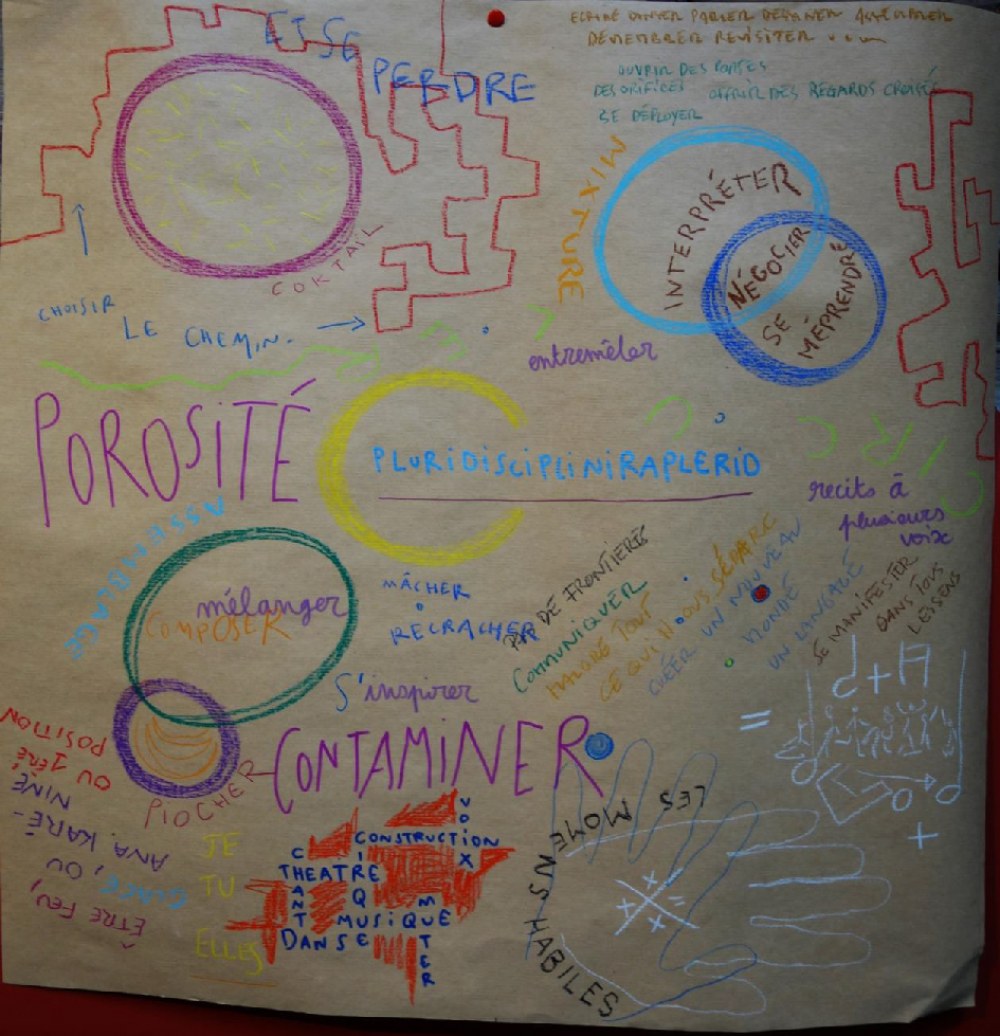 ET SE
PERDRE
PARLER
DÉMEMBRER REVISITER
OUVRIR DES PORTES
DES ORIFICES OFFRIR DES REGARDS CROISÉ
SE DÉPLOYER
MIXTURE
INTERPRÉTER
NÉGOCIER
SE MÉPRENDRE
COKTAIL
CHOISIR
LE CHEMIN.
entremêler
POROSITÉ
PLURIDISCIPLINIRAPLERID
recits à
plusieurs
voix
ASSEMBLAGE
mélanger
COMPOSER
MÂCHER
RECRACHER
S'inspirer
PAS DE FRONTIERES
COMMUNIQUER
MALGRÉ TOUT
CE QUI NOUS SÉPARE
CRÉER UN NOUVEAU
MONDE
UN LANGAGE
SE MANIFESTER
DANS TOUS
LES SENS
d + A
=
+
CONTAMINER
PIOCHER
ÊTRE FEU,
GLACE, OU
ANA. KARÉ-
NINE
OU JÉRÉ
POSITION
JE
TU
ELLES
VOIX
CONSTRUCTION
CIRQUE
THEATRE
CHANT
MUSIQUE
DANSE
LES MOMENS HABILES